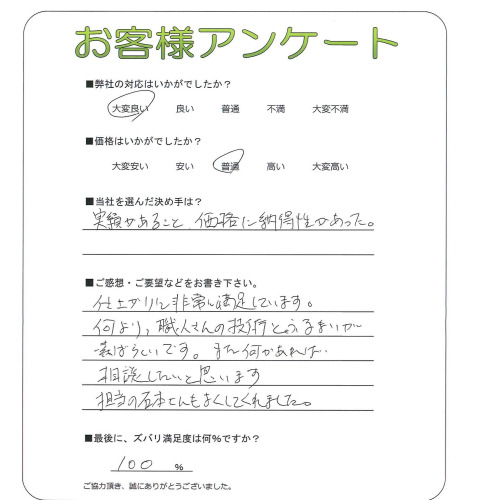 お客様アンケート
■弊社の対応はいかがでしたか？
大変良い 良い 普通 不満 大変不満
■価格はいかがでしたか？
大変安い 安い 普通 高い 大変高い
■当社を選んだ決め手は？
実績があること、価格に納得性があった。
■ご感想・ご要望などをお書き下さい。
仕上がりに非常に満足しています。
何より、職人さんの技術とふるまいが
素ばらしいです。また何かあれば
相談したいと思います
担当の石本さんもよくしてくれました。
■最後に、ズバリ満足度は何％ですか？
100 %
ご協力頂き、誠にありがとうございました。